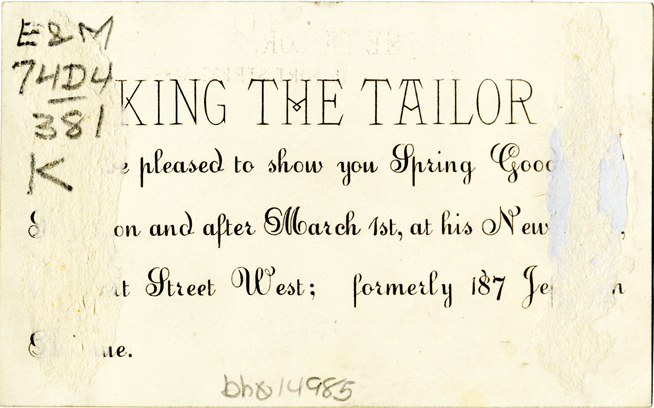 E&M
74D4
381
K
KING THE TAILOR
pleased to show you Spring
on and after March 1st, at his New
Street West; formerly 187
bh014985